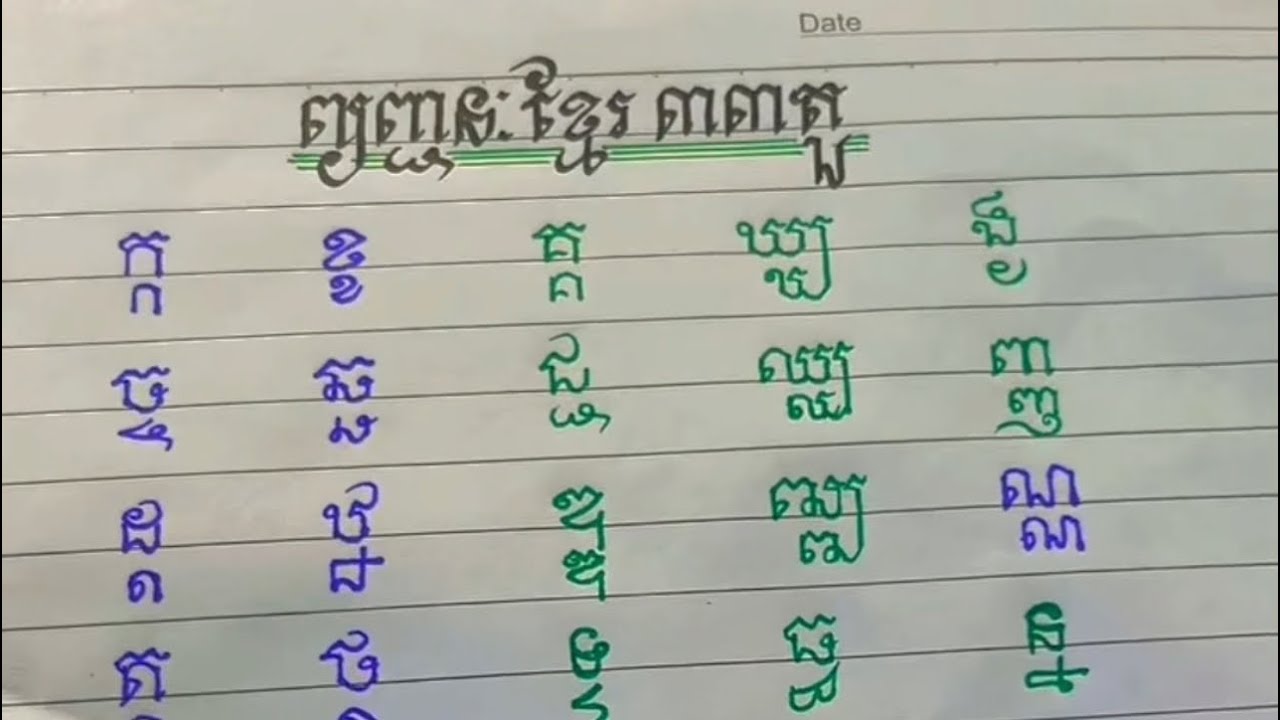 Date
ព្យញ្ជនៈខ្មែរ ៣៣តួ
ក្ក ខ្ខ គ្គ ឃ្ឃ ង្ង
ច្ច ឆ្ឆ ជ្ជ ឈ្ឈ ញ្ញ
ដ្ដ ឋ្ឋ ឌ្ឌ ឍ្ឍ ណ្ណ
ត ថ ទ្ទ ធ្ធ ន្ន